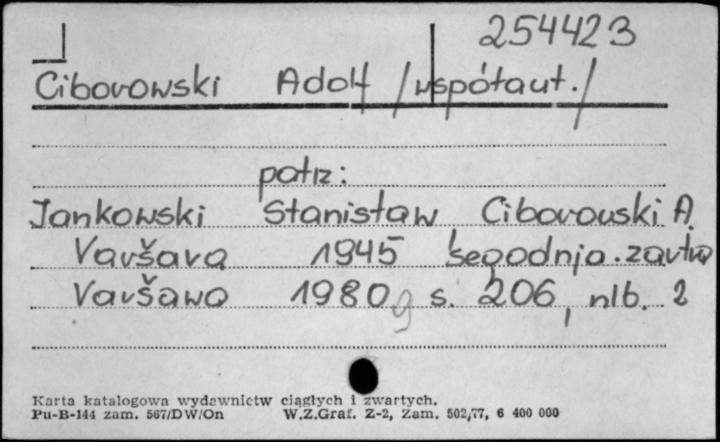 254423
Ciborowski Adolf /współaut./
patrz:
Jankowski Stanisław Ciborowski A.
Varšava 1945 segodnja. zavtra
Varšawa 1980 g s. 206, nlb. 2
Karta katalogowa wydawnictw ciągłych i zwartych.
Pu-B-144 zam. 567/DW/On W.Z.Graf. Z-2, Zam. 502,77, 6 400 000